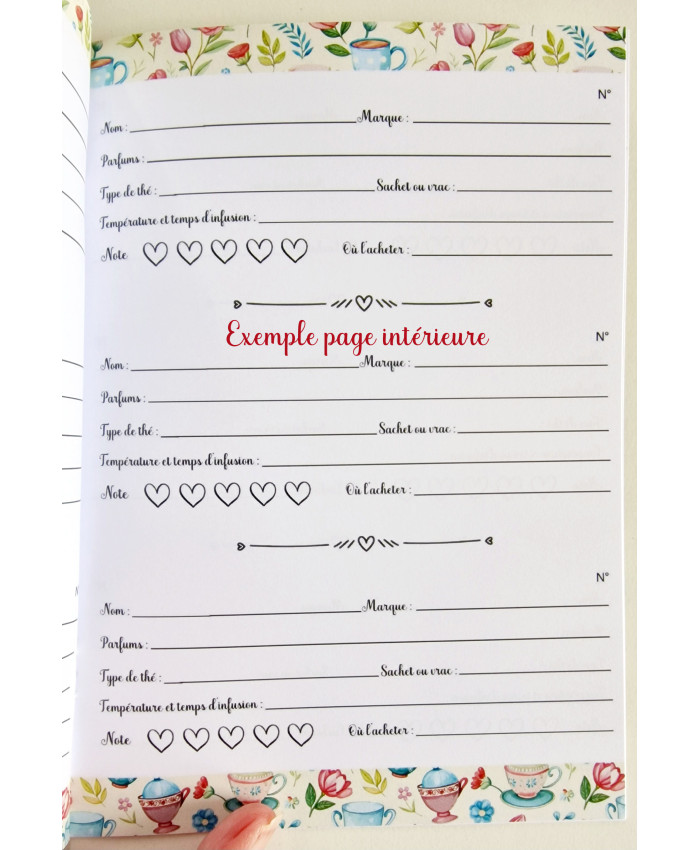 N°
Nom : Marque :
Parfums :
Type de thé : Sachet ou vrac :
Température et temps d'infusion :
Note Où l'acheter :
Exemple page intérieure
N°
Nom : Marque :
Parfums :
Type de thé : Sachet ou vrac :
Température et temps d'infusion :
Note Où l'acheter :
N°
Nom : Marque :
Parfums :
Type de thé : Sachet ou vrac :
Température et temps d'infusion :
Note Où l'acheter :